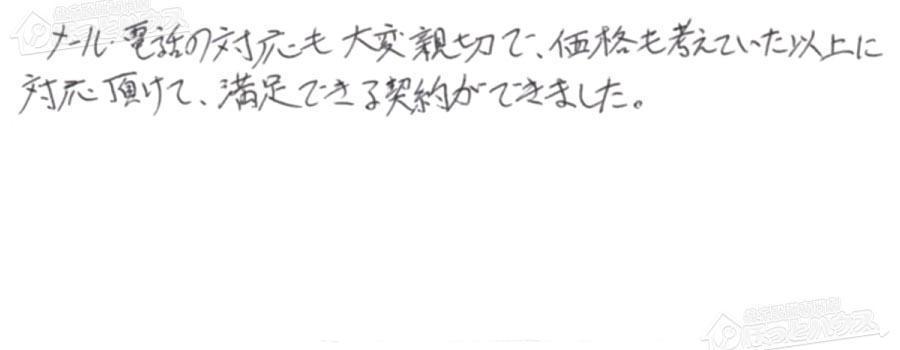 メール・電話の対応も大変親切で、価格も考えていた以上に
対応頂けて、満足できる契約ができました。
ほっとハウス